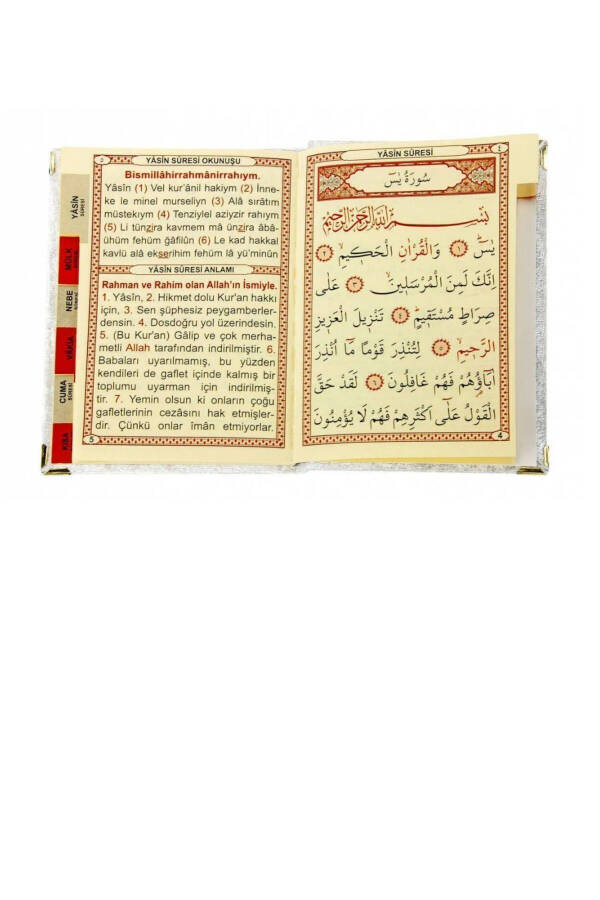 YÂSÎN SÛRESİ
٤
سُورَةُ يٰسٓ
بِسْمِ اللّٰهِ الرَّحْمٰنِ الرَّحِيمِ
يٰسٓ ﴿١﴾ وَالْقُرْاٰنِ الْحَكِيمِ ﴿٢﴾
اِنَّكَ لَمِنَ الْمُرْسَلِينَ ﴿٣﴾ عَلٰى
صِرَاطٍ مُسْتَقِيمٍ ﴿٤﴾ تَنْزِيلَ الْعَزِيزِ
الرَّحِيمِ ﴿٥﴾ لِتُنْذِرَ قَوْمًا مَٓا اُنْذِرَ
اٰبَٓاؤُ۬هُمْ فَهُمْ غَافِلُونَ ﴿٦﴾ لَقَدْ حَقَّ
الْقَوْلُ عَلٰٓى اَكْثَرِهِمْ فَهُمْ لَا يُؤْمِنُونَ
4
٥
YÂSÎN SÛRESİ OKUNUŞU
Bismillâhirrahmânirrahıym.
Yâsîn (1) Vel kur'ânil hakiym (2) İnne-
ke le minel murseliyn (3) Alâ sırâtım
müstekıym (4) Tenziylel aziyzir rahıym
(5) Li tünzira kavmem mâ ünzira âbâ-
ühüm fehüm ğâfilûn (6) Le kad hakkal
kavlü alâ ekserihim fehüm lâ yü'minûn
YÂSÎN SÛRESİ ANLAMI
Rahman ve Rahim olan Allah'ın İsmiyle.
1. Yâsîn, 2. Hikmet dolu Kur'an hakkı
için, 3. Sen şüphesiz peygamberler-
densin. 4. Dosdoğru yol üzerindesin.
5. (Bu Kur'an) Gâlip ve çok merha-
metli Allah tarafından indirilmiştir. 6.
Babaları uyarılmamış, bu yüzden
kendileri de gaflet içinde kalmış bir
toplumu uyarman için indirilmiş-
tir. 7. Yemin olsun ki onların çoğu
gafletlerinin cezâsını hak etmişler-
dir. Çünkü onlar îmân etmiyorlar.
5
YÂSÎN
SÛRESİ
MÜLK
NEBE
VÂKIA
CUMA
KISA